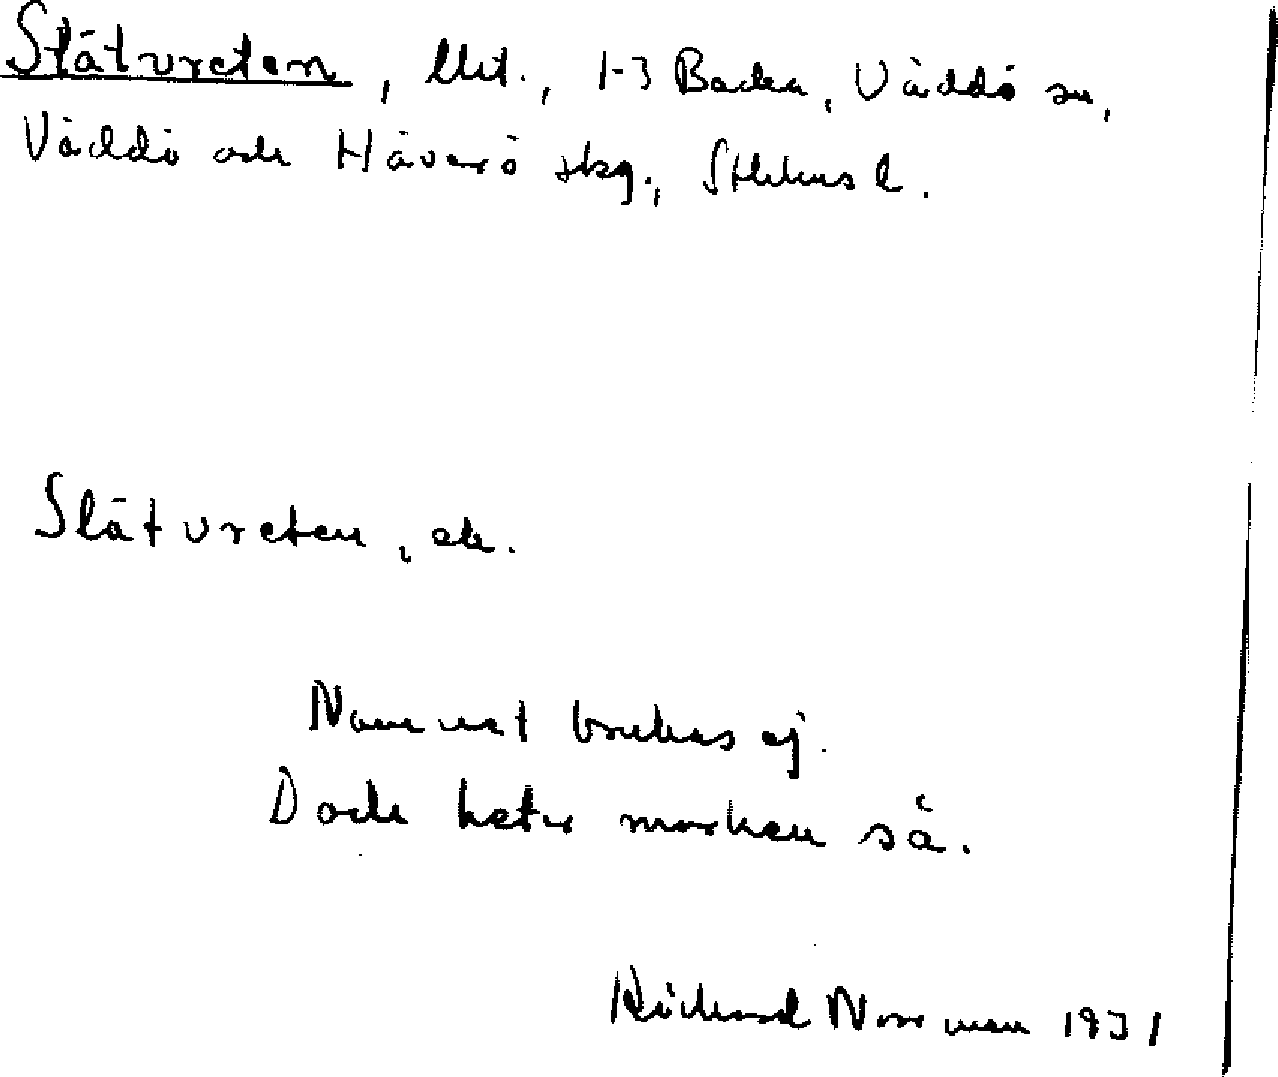 Slätvreten, lht., 1-3 Backa, Väddö sn,
Väddö och Häverö skg., Sthlms l.
Slätvreten, ek.
Namnet brukas ej.
Dock heter marken så.
Richard Norrman 1931